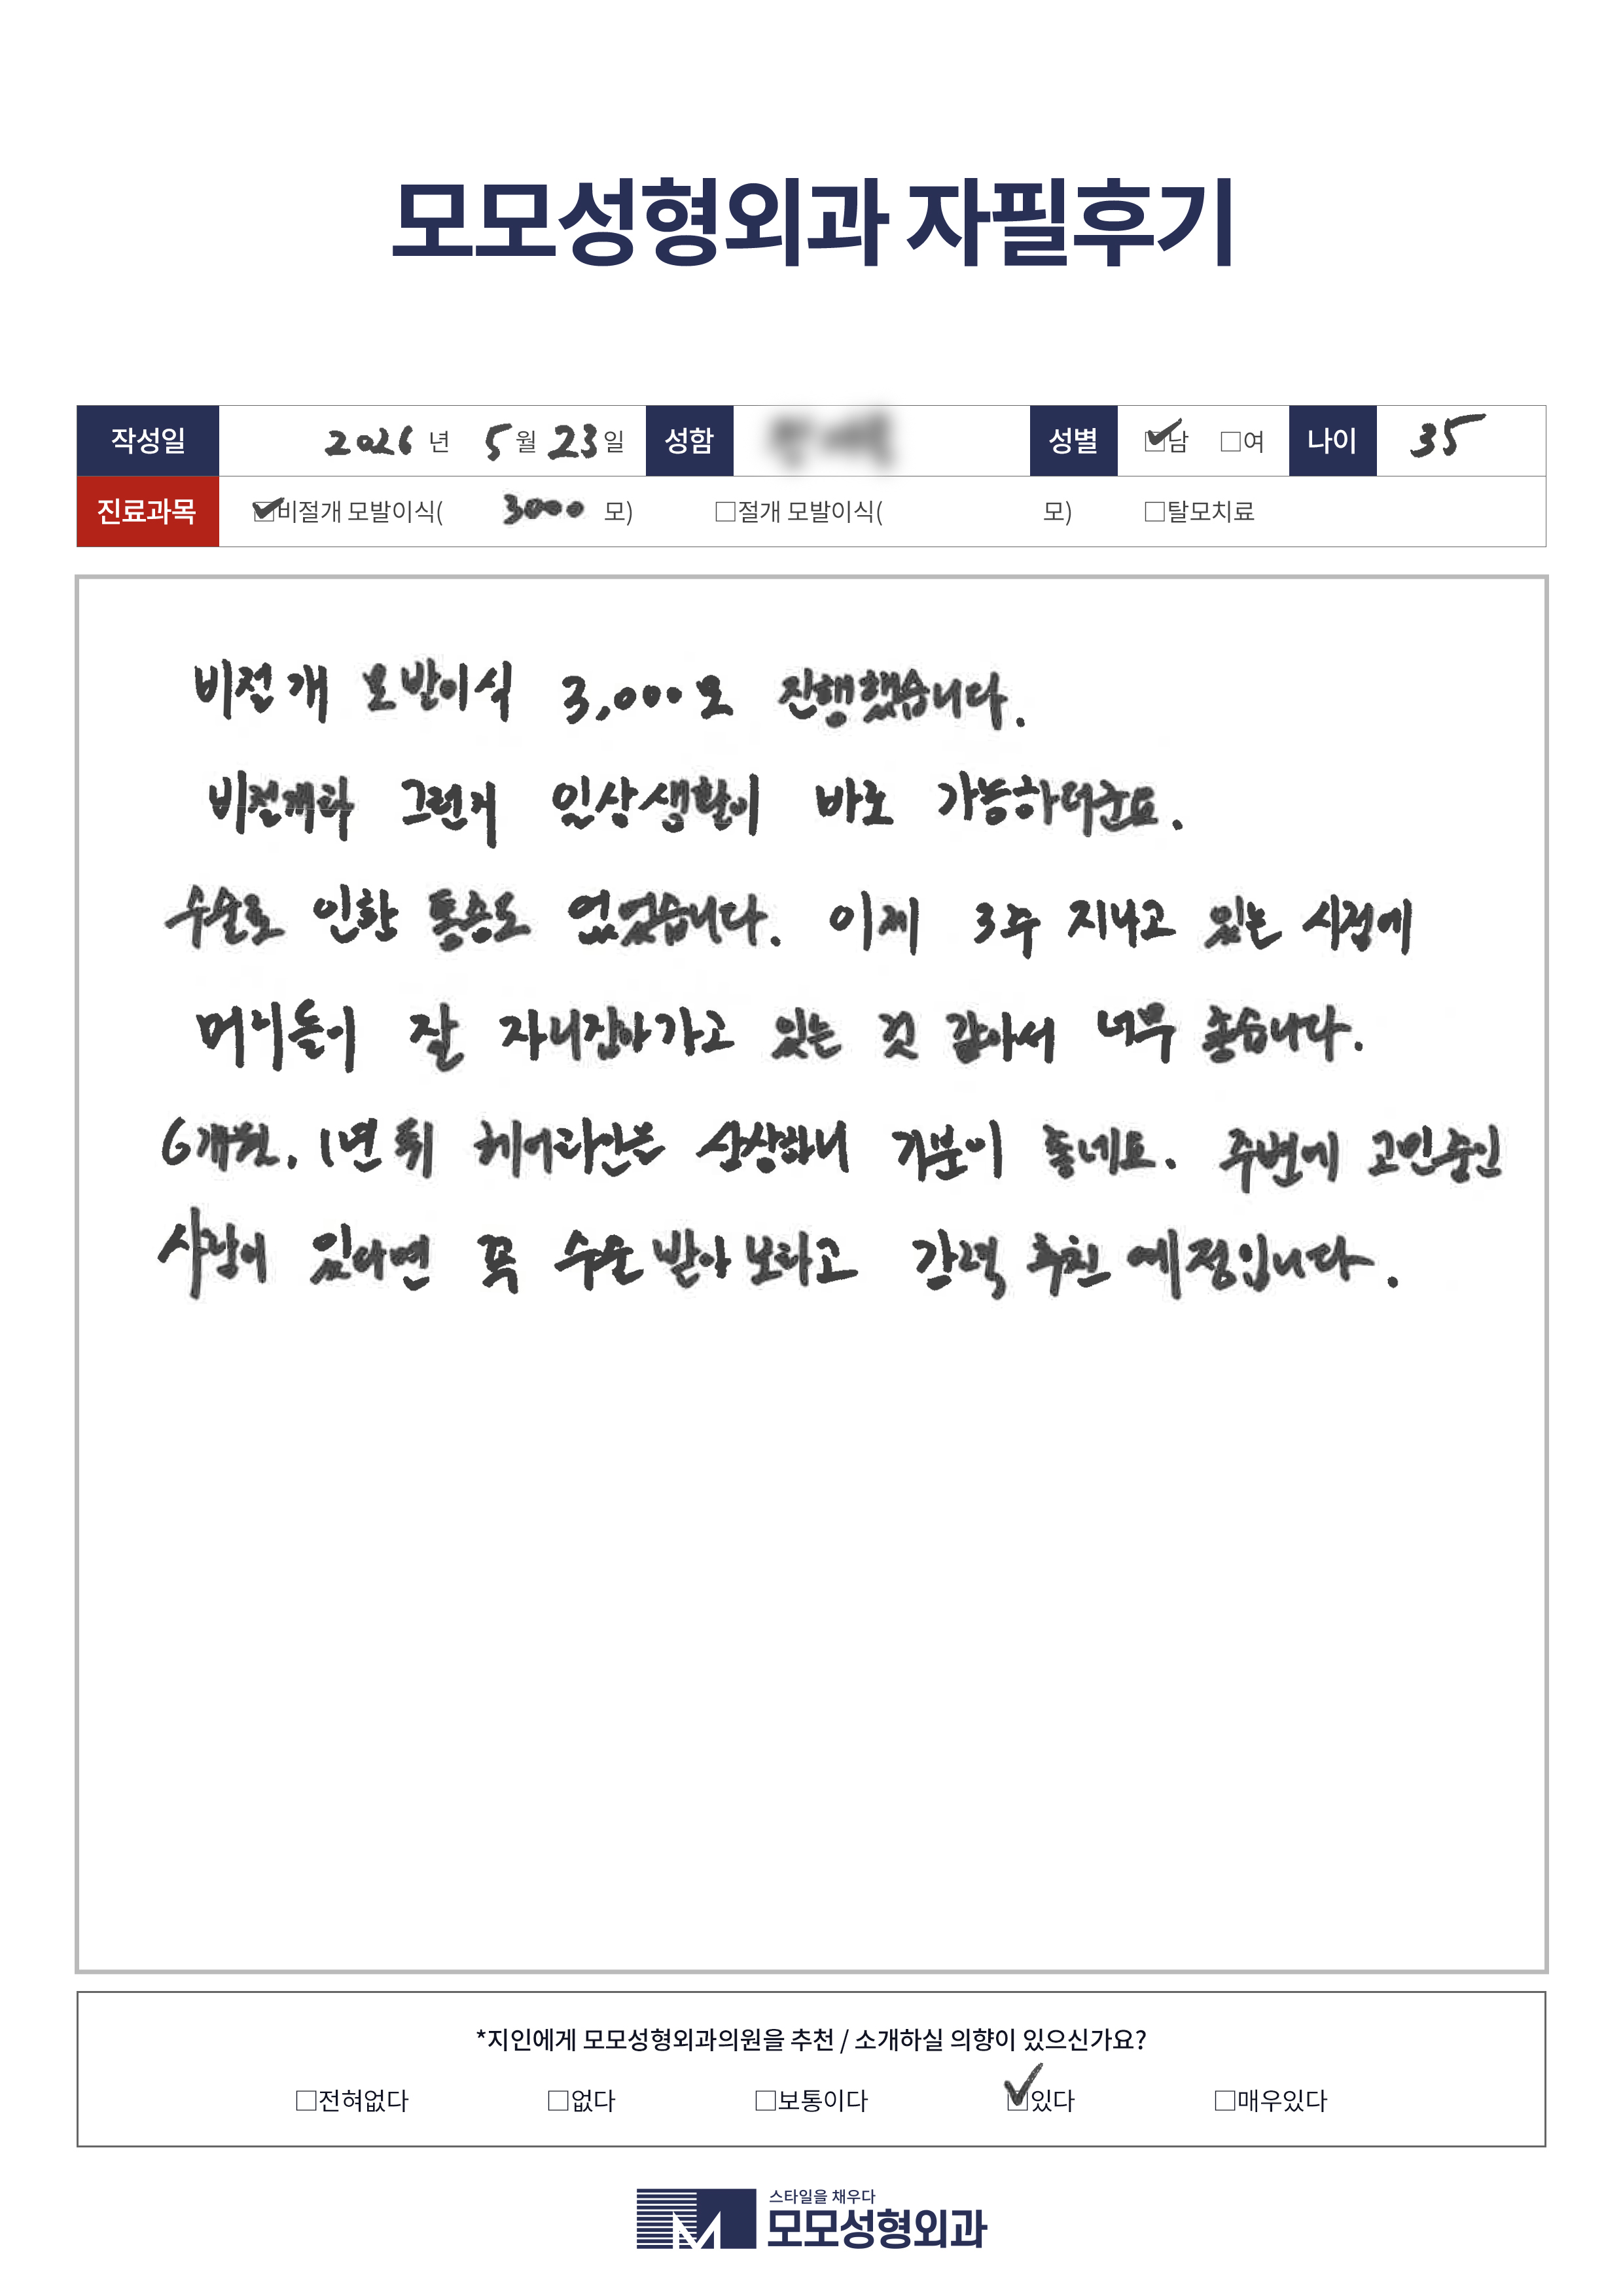 모모성형외과 자필후기
작성일 2026 년 5 월 23 일 성함 성별 ☑남 □여 나이 35
진료과목 ☑비절개 모발이식( 3000 모) □절개 모발이식( 모) □탈모치료
비절개 모발이식 3,000모 진행했습니다.
비절개라 그런지 일상생활이 바로 가능하더군요.
수술로 인한 통증도 없었습니다. 이제 3주 지나고 있는 시점에
머리들이 잘 자리잡아가고 있는 것 같아서 너무 좋습니다.
6개월, 1년 뒤 헤어라인을 상상하니 기분이 좋네요. 주변에 고민중인
사람이 있다면 꼭 수술 받아 보라고 강력 추천 예정입니다.
*지인에게 모모성형외과의원을 추천 / 소개하실 의향이 있으신가요?
□전혀없다 □없다 □보통이다 ☑있다 □매우있다
스타일을 채우다
모모성형외과